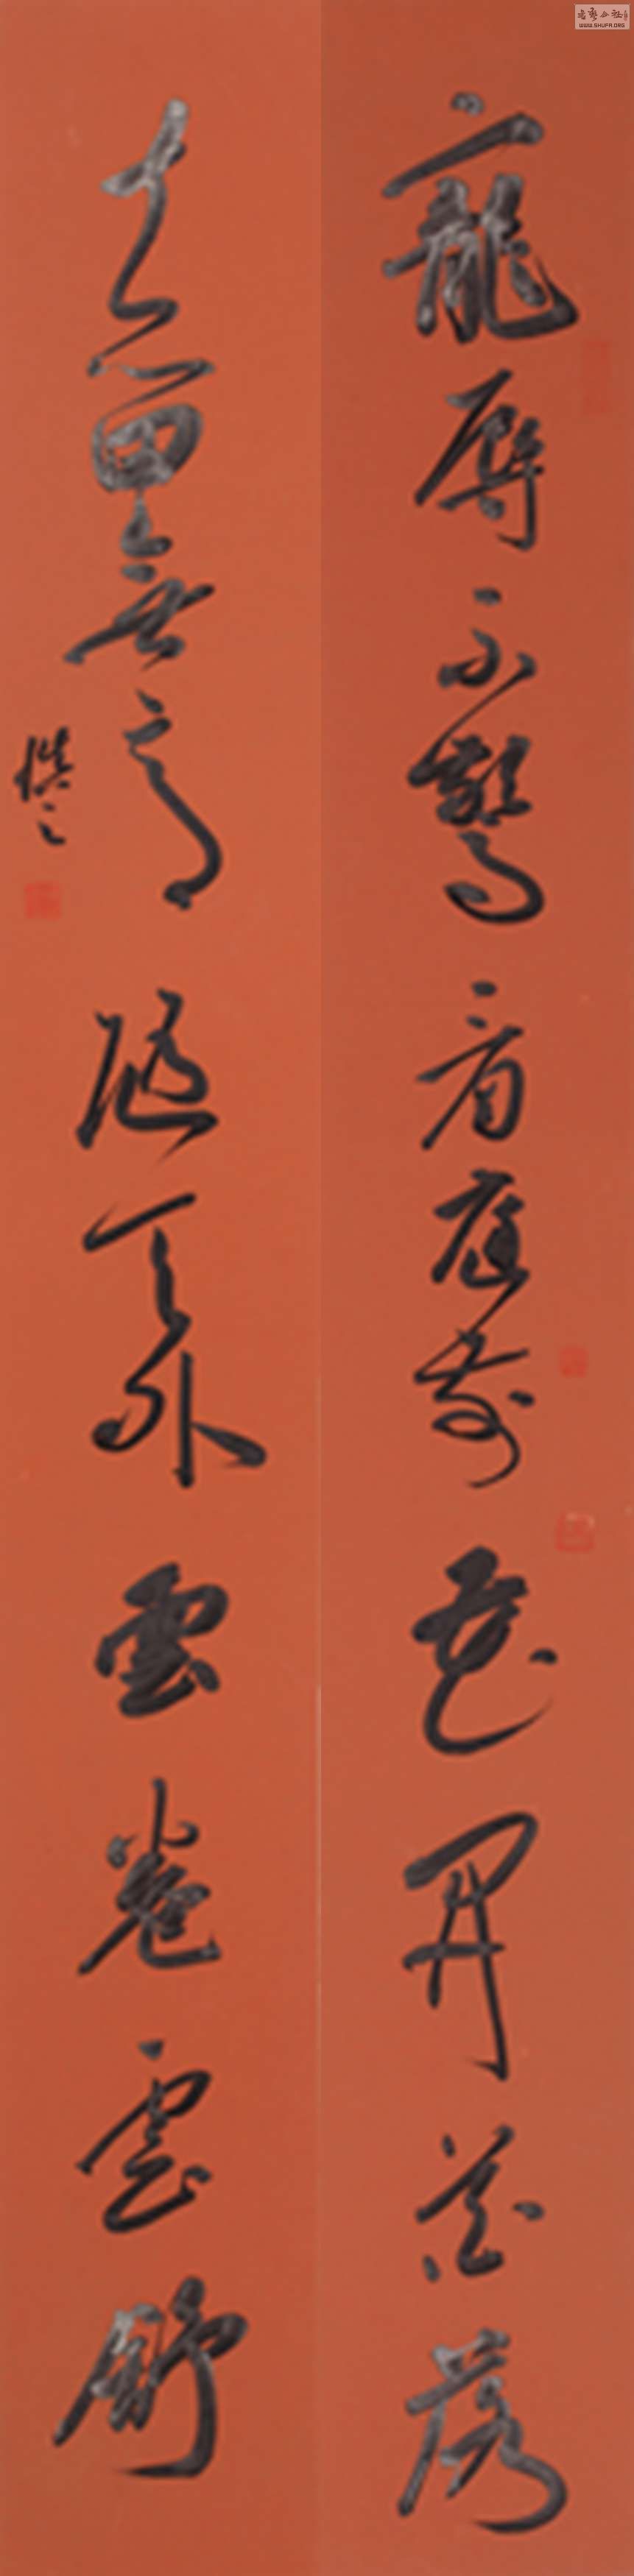 寵辱不驚看庭前花開花落
去留無意隨天外雲卷雲舒
慎之
WWW.SHUFA.ORG